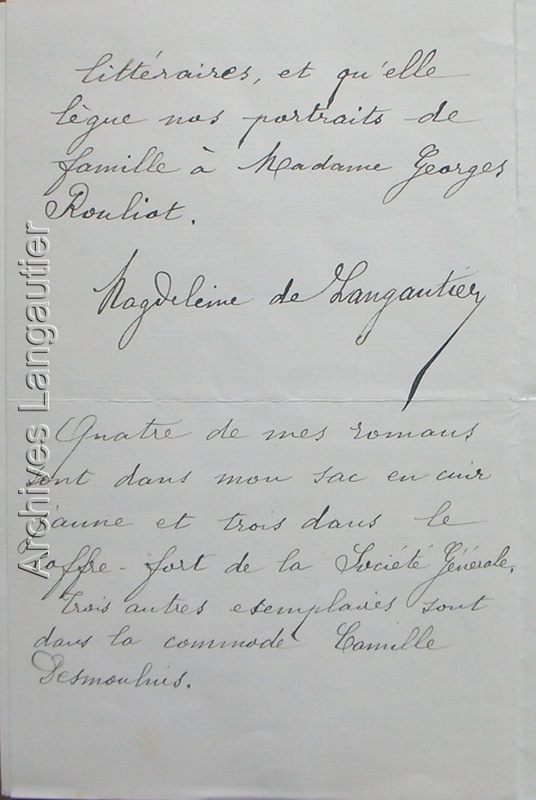 littéraires, et qu'elle
lègue nos portraits de
famille à Madame Georges
Rouliot.
Magdeleine de Langautier
Quatre de mes romans
sont dans mon sac en cuir
jaune et trois dans le
Coffre-fort de la Société Générale.
Trois autres exemplaires sont
dans la commode Camille
Desmoulins.
Archives Langautier